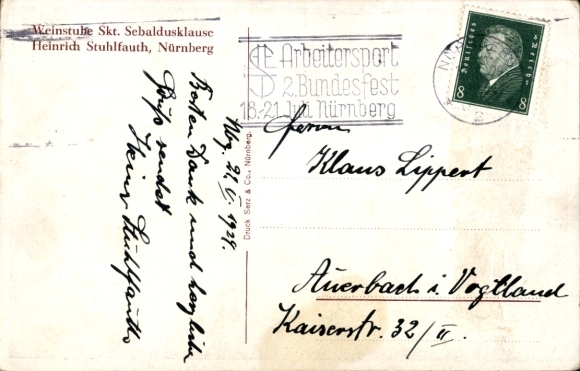 Weinstube Skt. Sebaldusklause
Heinrich Stuhlfauth, Nürnberg
Arbeitersport
2. Bundesfest
18.-21. Juli Nürnberg
Deutsches Reich
8 8
2
Nbg. 21. V. 1929.
Besten Dank und herzliche
Grüße sendet
Heiner Stuhlfauth
Druck Serz & Co., Nürnberg.
Herrn
Klaus Lippert
Auerbach i. Vogtland
Kaiserstr. 32/II.